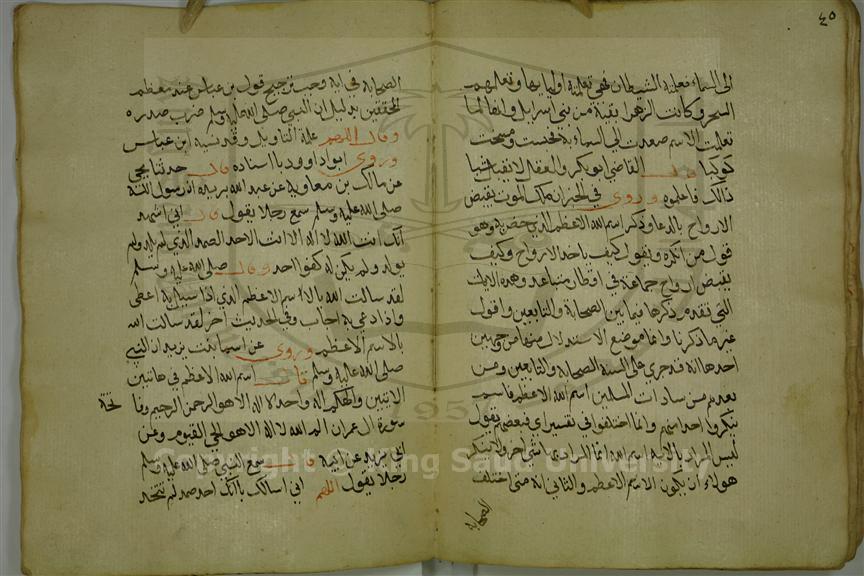 ٤٥
الى السماء تعليه الشيطان فهي تعليه اوليا بها وتعلمهم
السحر وكانت الزهرا بقية من بني اسرايل وانها لما
تعلمت الاسم صعدت الى السماء به فخنست ومسخت
كوكبا القاضي ابو بكر والعقل لا
ذالك فاعلموه وروى في الخبر ان ملك الموت يقبض
الارواح بالدعا وذكر اسم الله الاعظم الذي خص به وهو
قول من انكره ويقول كيف ياخذ الارواح وكيف
يقبض ارواح جماعة في اقطار متباعد وهذه
التي تقدم ذكرها فيما بين الصحابة والتابعين واقول
غير ما ذكرنا وانما موضع الاستدلال منها من وجهين
احدها انه قد جرى على السنة الصحابة والتابعين ومن
بعدهم من سادات المسلمين اسم الله الاعظم
ينكروا احد اسم وانما اختلفوا في تفسير اي فبعضهم يقول
ليس المراد بالاية اسم الله انما المراد شي اخر ولا ينكر
هولاء ان يكون الاسم الاعظم والثاني انه متى اختلف
الصحابة
الصحابة في اية وجب ترجيح قول بن عباس عند معظم
المحققين بدليل ان النبي صلى الله عليه وسلم ضرب صدره
وقال اللهم علمه التاويل وقد نسبه ابن عباس
وروى ابو داوود باسناده قال حدثنا يحي
عن مالك بن معاوية عن عبد الله بريدة ان رسول الله
صلى الله عليه وسلم سمع رجلا يقول قال اني اشهد
انك انت الله لا اله الا انت الاحد الصمد الذي لم يلد ولم
يولد ولم يكن له كفوا احد وقال صلى الله عليه وسلم
لقد سالت الله بالاسم الاعظم الذي اذا سيل به اعطى
واذا دعي به اجاب وفي الحديث اخر لقد سالت الله
بالاسم الاعظم وروى عن اسما بنت يزيد ان النبي
صلى الله عليه وسلم قال اسم الله الاعظم في هاتين
الايتين والهكم اله واحد لا اله الا هو الرحمن الرحيم وفا
تحة
سورة ال عمران الم الله لا اله الا هو الحي القيوم وعن
ابي بريدة عن ابيه قال سمع النبي صلى الله عليه وسلم
رجلا يقول اللهم اني اسالك بانك احد صمد لم تتخذ
1957
Copyright © King Saud University